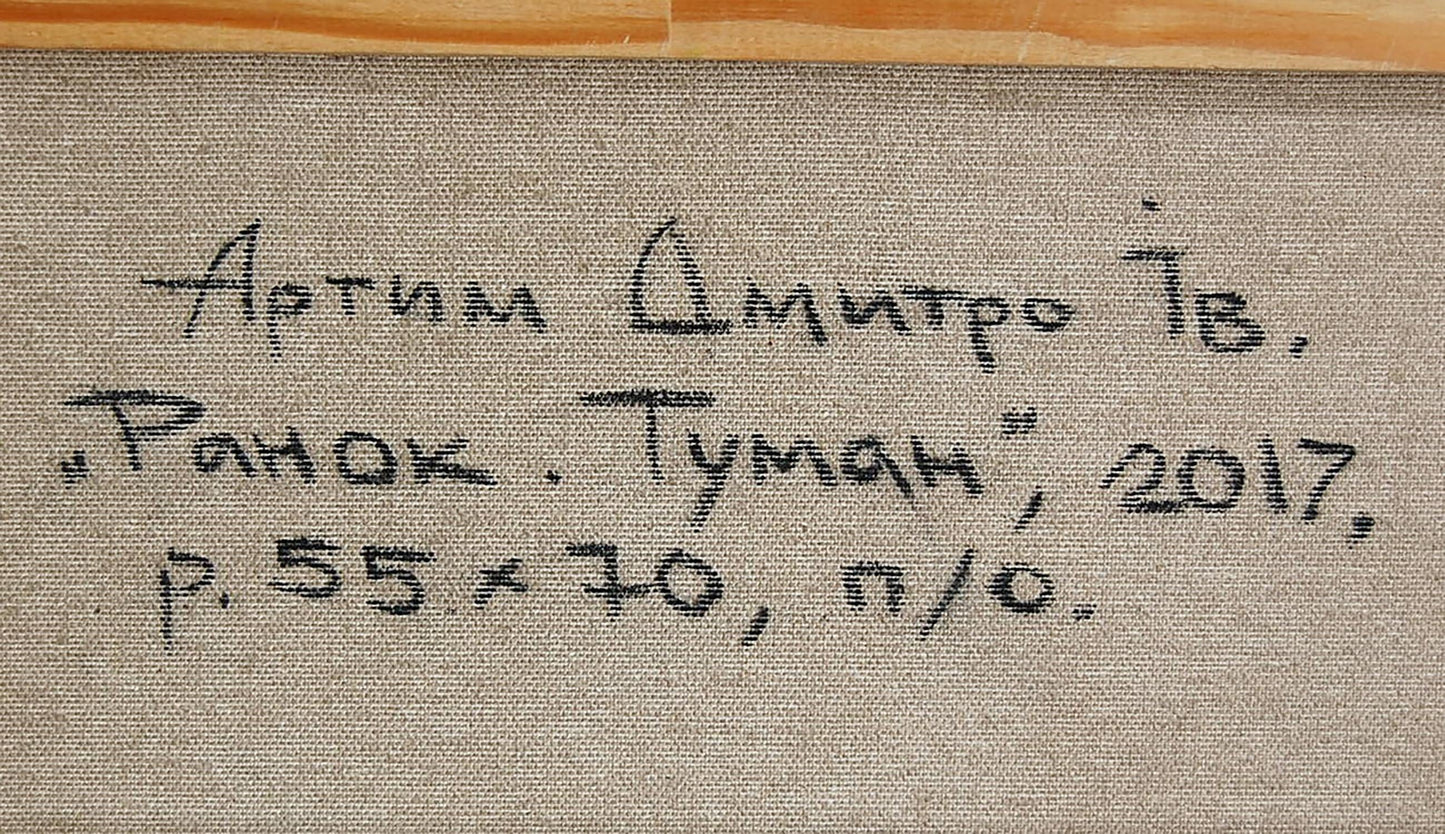 Артим Дмитро Ів.
„Ранок. Туман”, 2017.
р. 55 x 70, п/о.